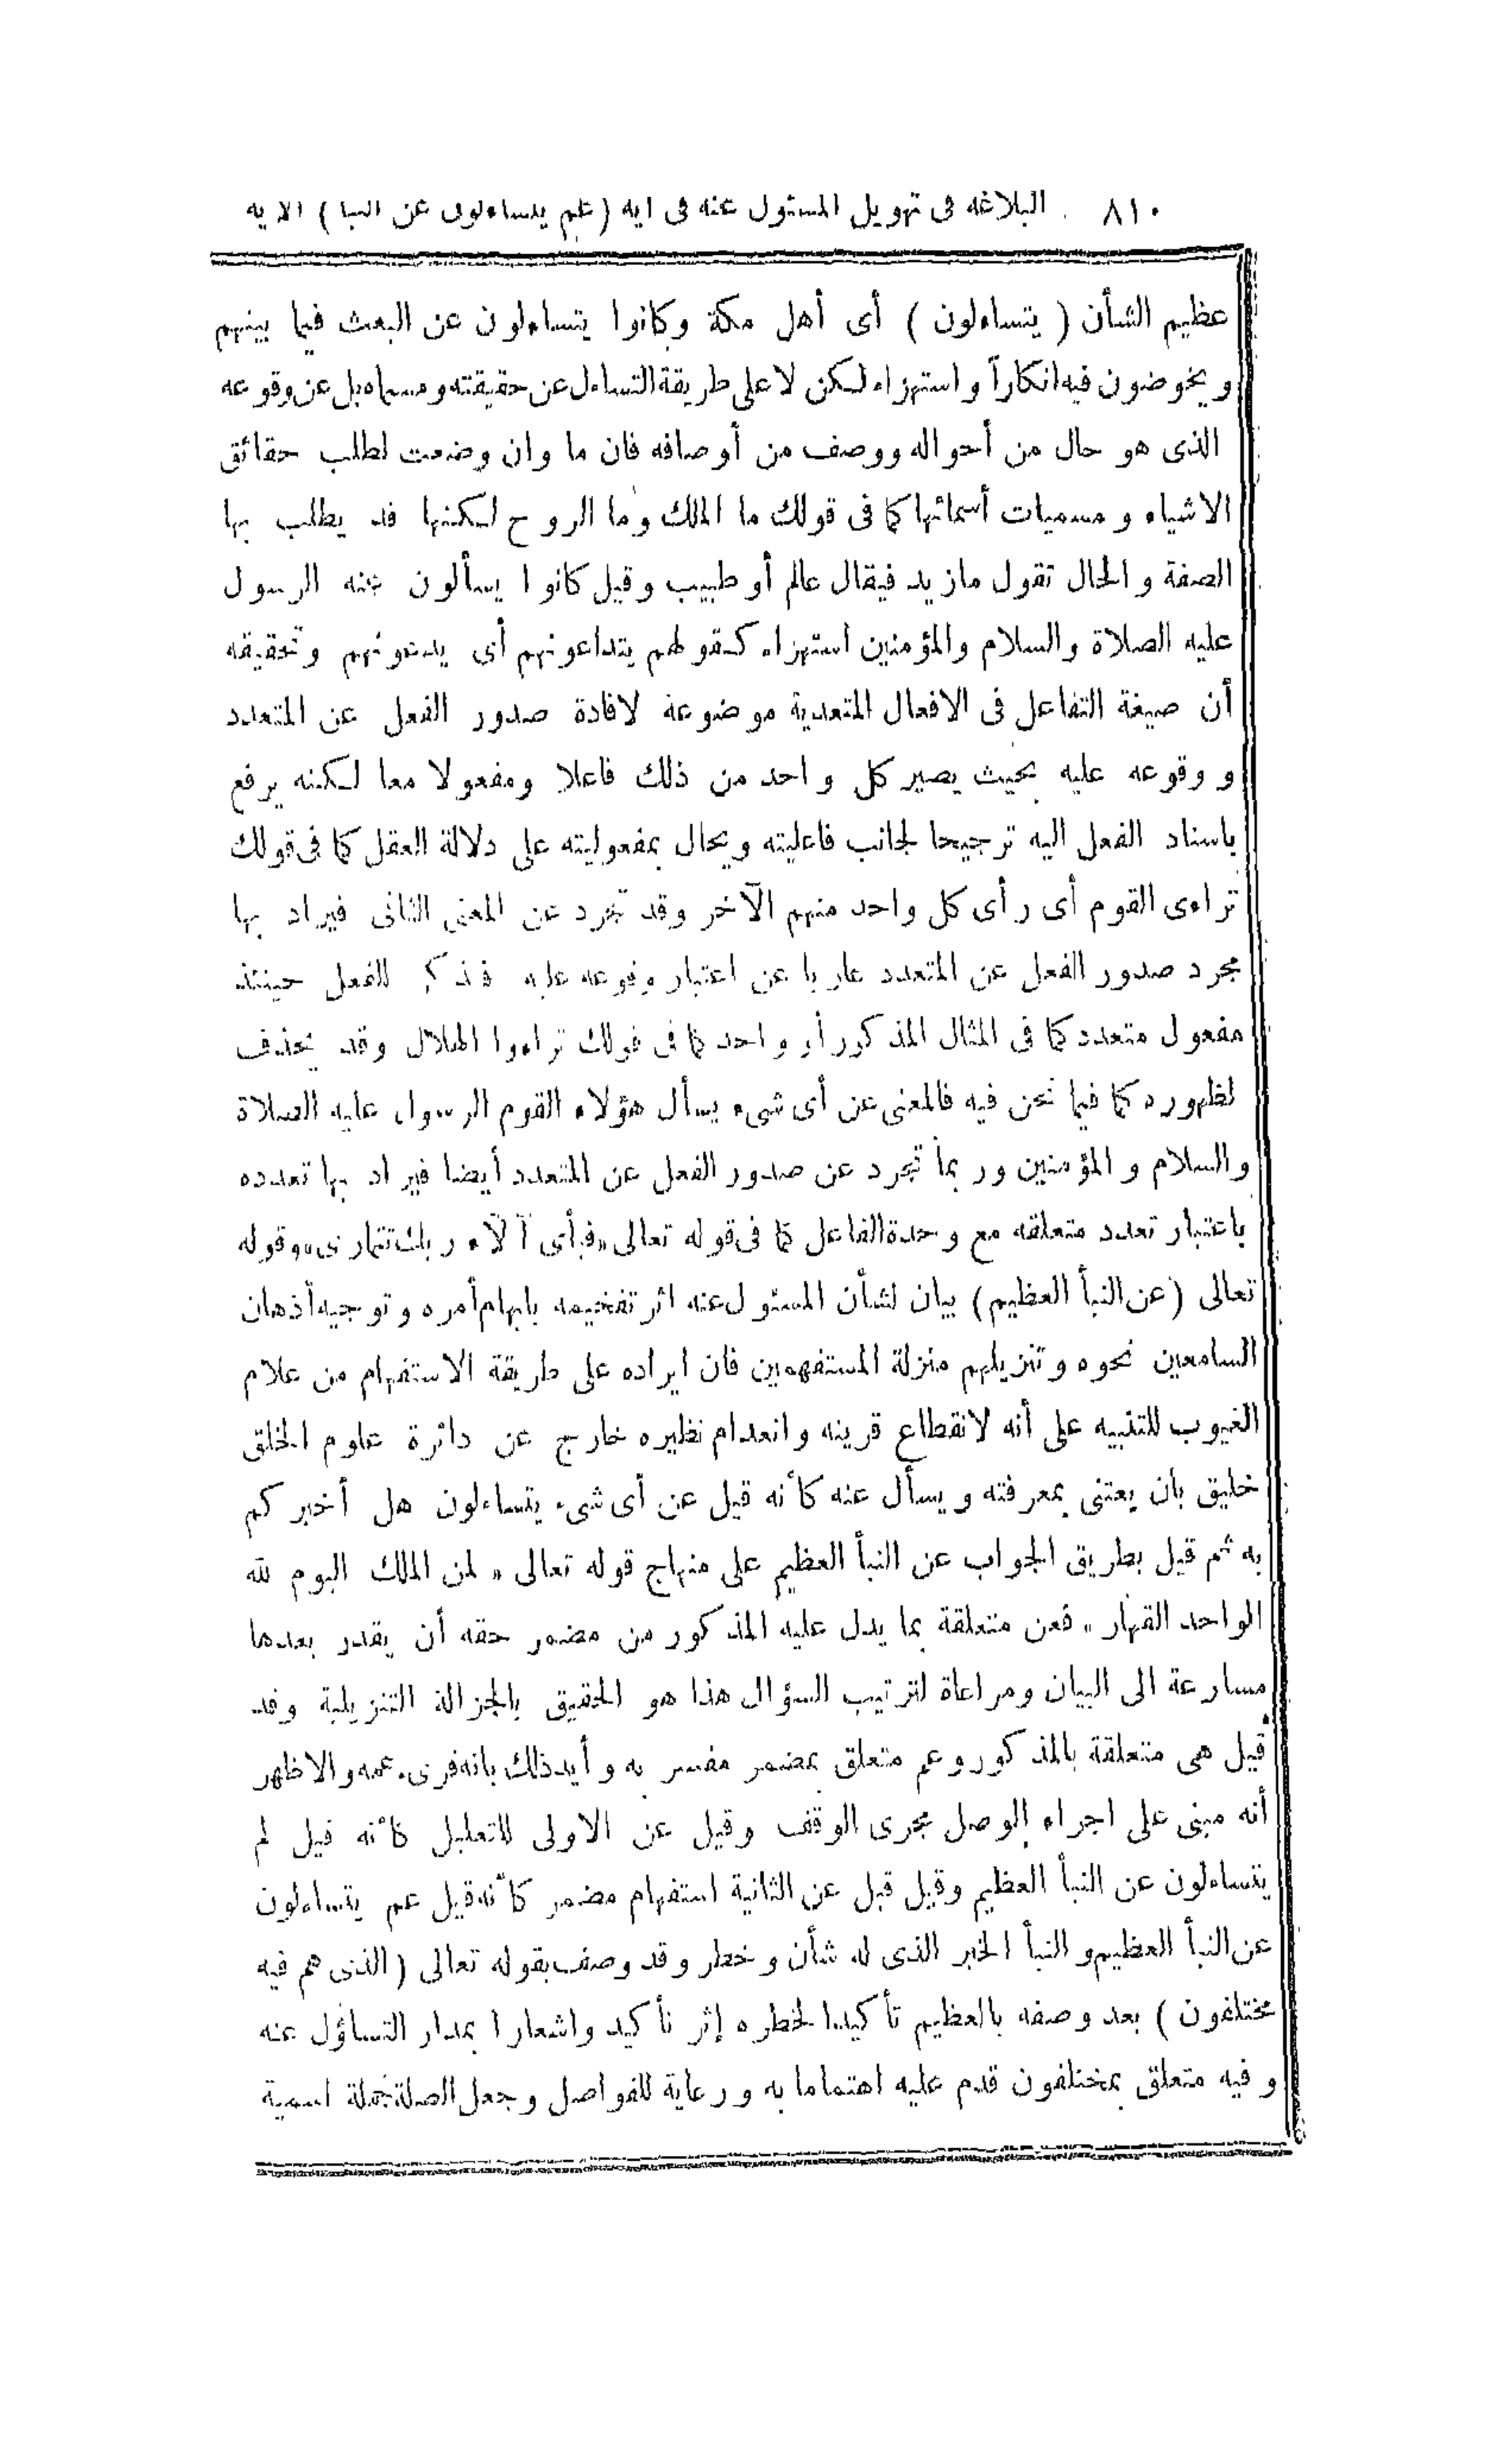 ٨١٠ البلاغة فى تهويل المسئول عنه فى آية (عم يتساءلون عن النبأ) الآية
عظيم الشأن ( يتساءلون ) أى أهل مكة وكانوا يتساءلون عن البعث فيما بينهم
ويخوضون فيه انكاراً واستهزاء لكن لا على طريقة التساءل عن حقيقته ومسماه بل عن وقوعه
الذى هو حال من أحواله ووصف من أوصافه فان ما وان وضعت لطلب حقائق
الاشياء ومسميات أسمائها كما فى قولك ما الملك وما الروح لكنها قد يطلب بها
الصفة والحال تقول مازيد فيقال عالم أو طبيب وقيل كانوا يسألون عنه الرسول
عليه الصلاة والسلام والمؤمنين استهزاء كقولهم يتداعونهم أى يدعونهم وتحقيقه
أن صيغة التفاعل فى الافعال المتعدية موضوعة لافادة صدور الفعل عن المتعدد
ووقوعه عليه بحيث يصير كل واحد من ذلك فاعلا ومفعولا معا لكنه يرفع
باسناد الفعل اليه ترجيحا لجانب فاعليته ويحال بمفعوليته على دلالة العقل كما فى قولك
تراءى القوم أى رأى كل واحد منهم الآخر وقد تجرد عن المعنى الثانى فيراد بها
مجرد صدور الفعل عن المتعدد عاريا عن اعتبار وقوعه عليه فيذكر للفعل حينئذ
مفعول متعدد كما فى المثال المذكور أو واحد كما فى قولك تراءوا الهلال وقد يحذف
لظهوره كما فيما نحن فيه فالمعنى عن أى شىء يسأل هؤلاء القوم الرسول عليه الصلاة
والسلام والمؤمنين وربما تجرد عن صدور الفعل عن المتعدد أيضا فيراد بها تعدده
باعتبار تعدد متعلقه مع وحدة الفاعل كما فى قوله تعالى «فبأى آلاء ربك تتمارى» وقوله
تعالى (عن النبأ العظيم) بيان لشأن المسئول عنه اثر تفخيمه بابهام أمره وتوجيه أذهان
السامعين نحوه وتنزيلهم منزلة المستفهمين فان ايراده على طريقة الاستفهام من علام
الغيوب للتنبيه على أنه لانقطاع قرينه وانعدام نظيره خارج عن دائرة علوم الخلق
خليق بأن يعتنى بمعرفته ويسأل عنه كأنه قيل عن أى شىء يتساءلون هل أخبركم
به ثم قيل بطريق الجواب عن النبأ العظيم على منهاج قوله تعالى « لمن الملك اليوم لله
الواحد القهار » فعن متعلقة بما يدل عليه المذكور من مضمر حقه أن يقدر بعدها
مسارعة الى البيان ومراعاة لترتيب السؤال هذا هو الحقيق بالجزالة التنزيلية وقد
قيل هى متعلقة بالمذكور وعم متعلق بمضمر مفسر به وأيد ذلك بانه قرىء عمه والاظهر
أنه مبنى على اجراء الوصل مجرى الوقف وقيل عن الاولى للتعليل كأنه قيل لم
يتساءلون عن النبأ العظيم وقيل قبل عن الثانية استفهام مضمر كأنه قيل عم يتساءلون
عن النبأ العظيم والنبأ الخبر الذى له شأن وخطر وقد وصف بقوله تعالى (الذى هم فيه
مختلفون ) بعد وصفه بالعظيم تأكيدا لخطره إثر تأكيد واشعارا بمدار التساؤل عنه
وفيه متعلق بمختلفون قدم عليه اهتماما به ورعاية للفواصل وجعل الصلة جملة اسمية